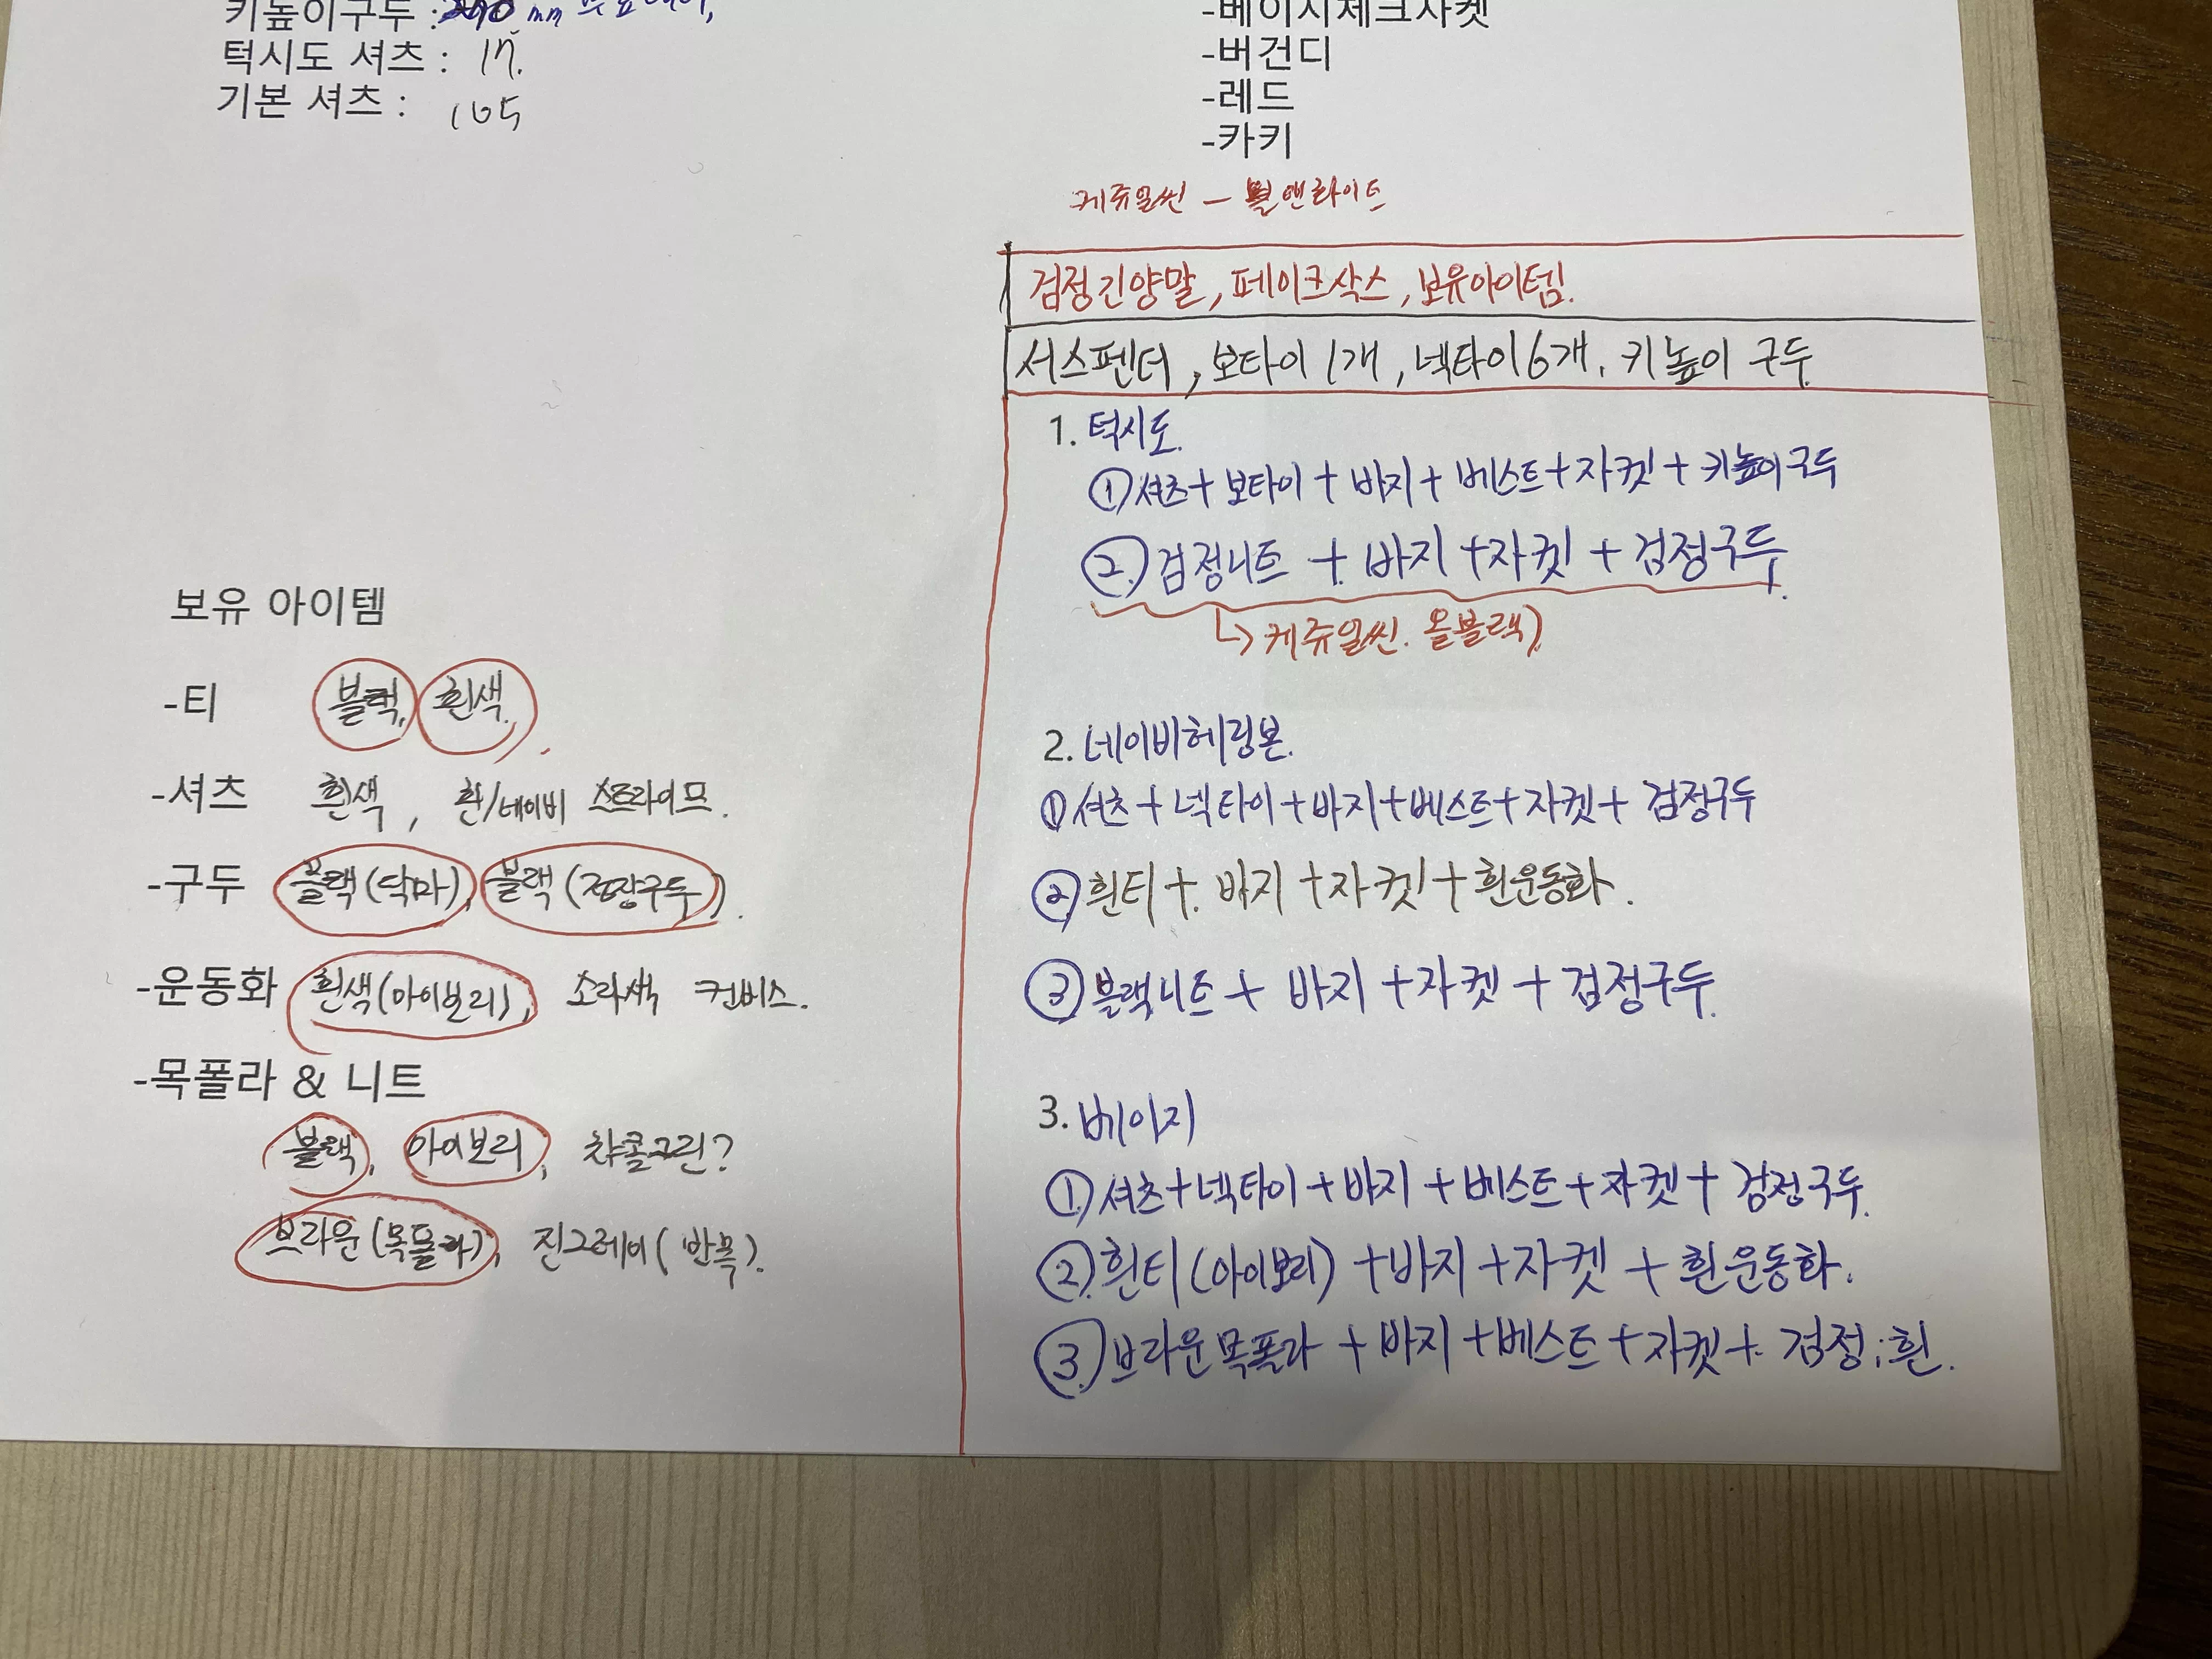 키높이구두 : mm
턱시도 셔츠 : 17.
기본 셔츠 : 105
-베이지체크자켓
-버건디
-레드
-카키
케쥬얼씬 - 볼앤라이트
검정긴양말, 페이크삭스, 보유아이템.
서스펜더, 보타이 1개, 넥타이 6개. 키높이 구두
1. 턱시도.
① 셔츠 + 보타이 + 바지 + 베스트 + 자켓 + 키높이구두
② 검정니트 + 바지 + 자켓 + 검정구두.
↳ 케쥬얼씬. 올블랙)
2. 네이비헤링본.
① 셔츠 + 넥타이 + 바지 + 베스트 + 자켓 + 검정구두
② 흰티 + 바지 + 자켓 + 흰운동화.
③ 블랙니트 + 바지 + 자켓 + 검정구두.
3. 베이지
① 셔츠 + 넥타이 + 바지 + 베스트 + 자켓 + 검정구두.
② 흰티(아이보리) + 바지 + 자켓 + 흰운동화.
③ 브라운목폴라 + 바지 + 베스트 + 자켓 + 검정;흰.
보유 아이템
-티 블랙, 흰색.
-셔츠 흰색, 흰/네이비 스트라이프.
-구두 블랙(닥마), 블랙(정장구두).
-운동화 흰색(아이보리), 소라색 컨버스.
-목폴라 & 니트
블랙, 아이보리, 챠콜그린?
브라운(목폴라), 진그레이(반목).